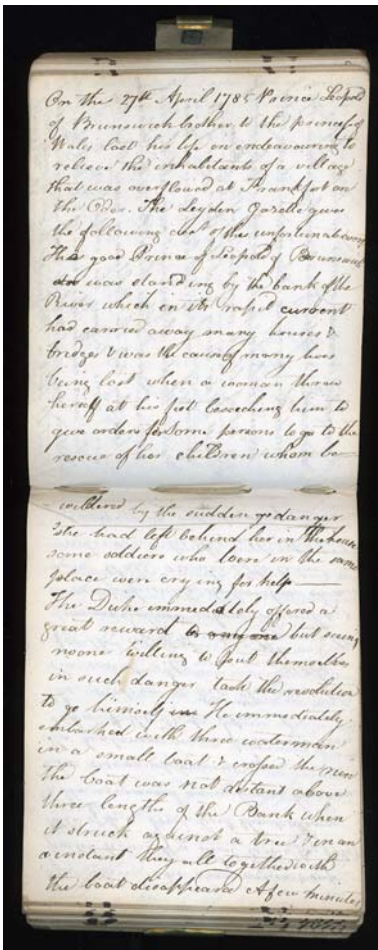 On the 27th April 1785 Prince Leopold
of Brunswick brother to the princess of
Wales lost his life on endeavouring to
relieve the inhabitants of a village
that was overflowed at Frankfort on
the Oder. The Leyden Gazette gives
the following acct of the unfortunate
The good Prince of Leopold of Brunswick
was standing by the bank of the
River which in its rapid current
had carried away many houses &
bridges & was the cause of many lives
being lost when a woman threw
herself at his feet beseeching him to
give orders for some persons to go to the
rescue of her children whom be—
wildered by the sudden danger
she had left behind her in the house
some soldiers who were in the same
place were crying for help—
The Duke immediately offered a
great reward to any one but seeing
no one willing to put themselves
in such danger took the resolution
to go himself He immediately
embarked with three waterman
in a small boat & crossed the river
the boat was not distant above
three lengths of the Bank when
it struck against a tree & in an
instant they all together with
the boat disappeared A few minutes